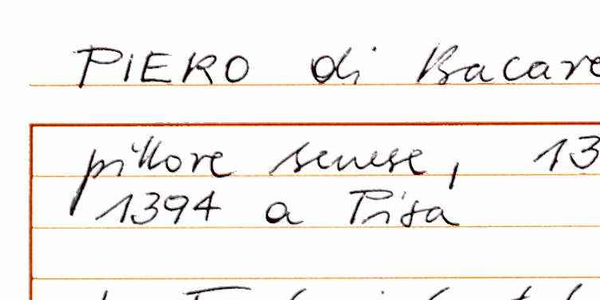 PIERO di Bacare
pittore senese, 13
1394 a Pisa